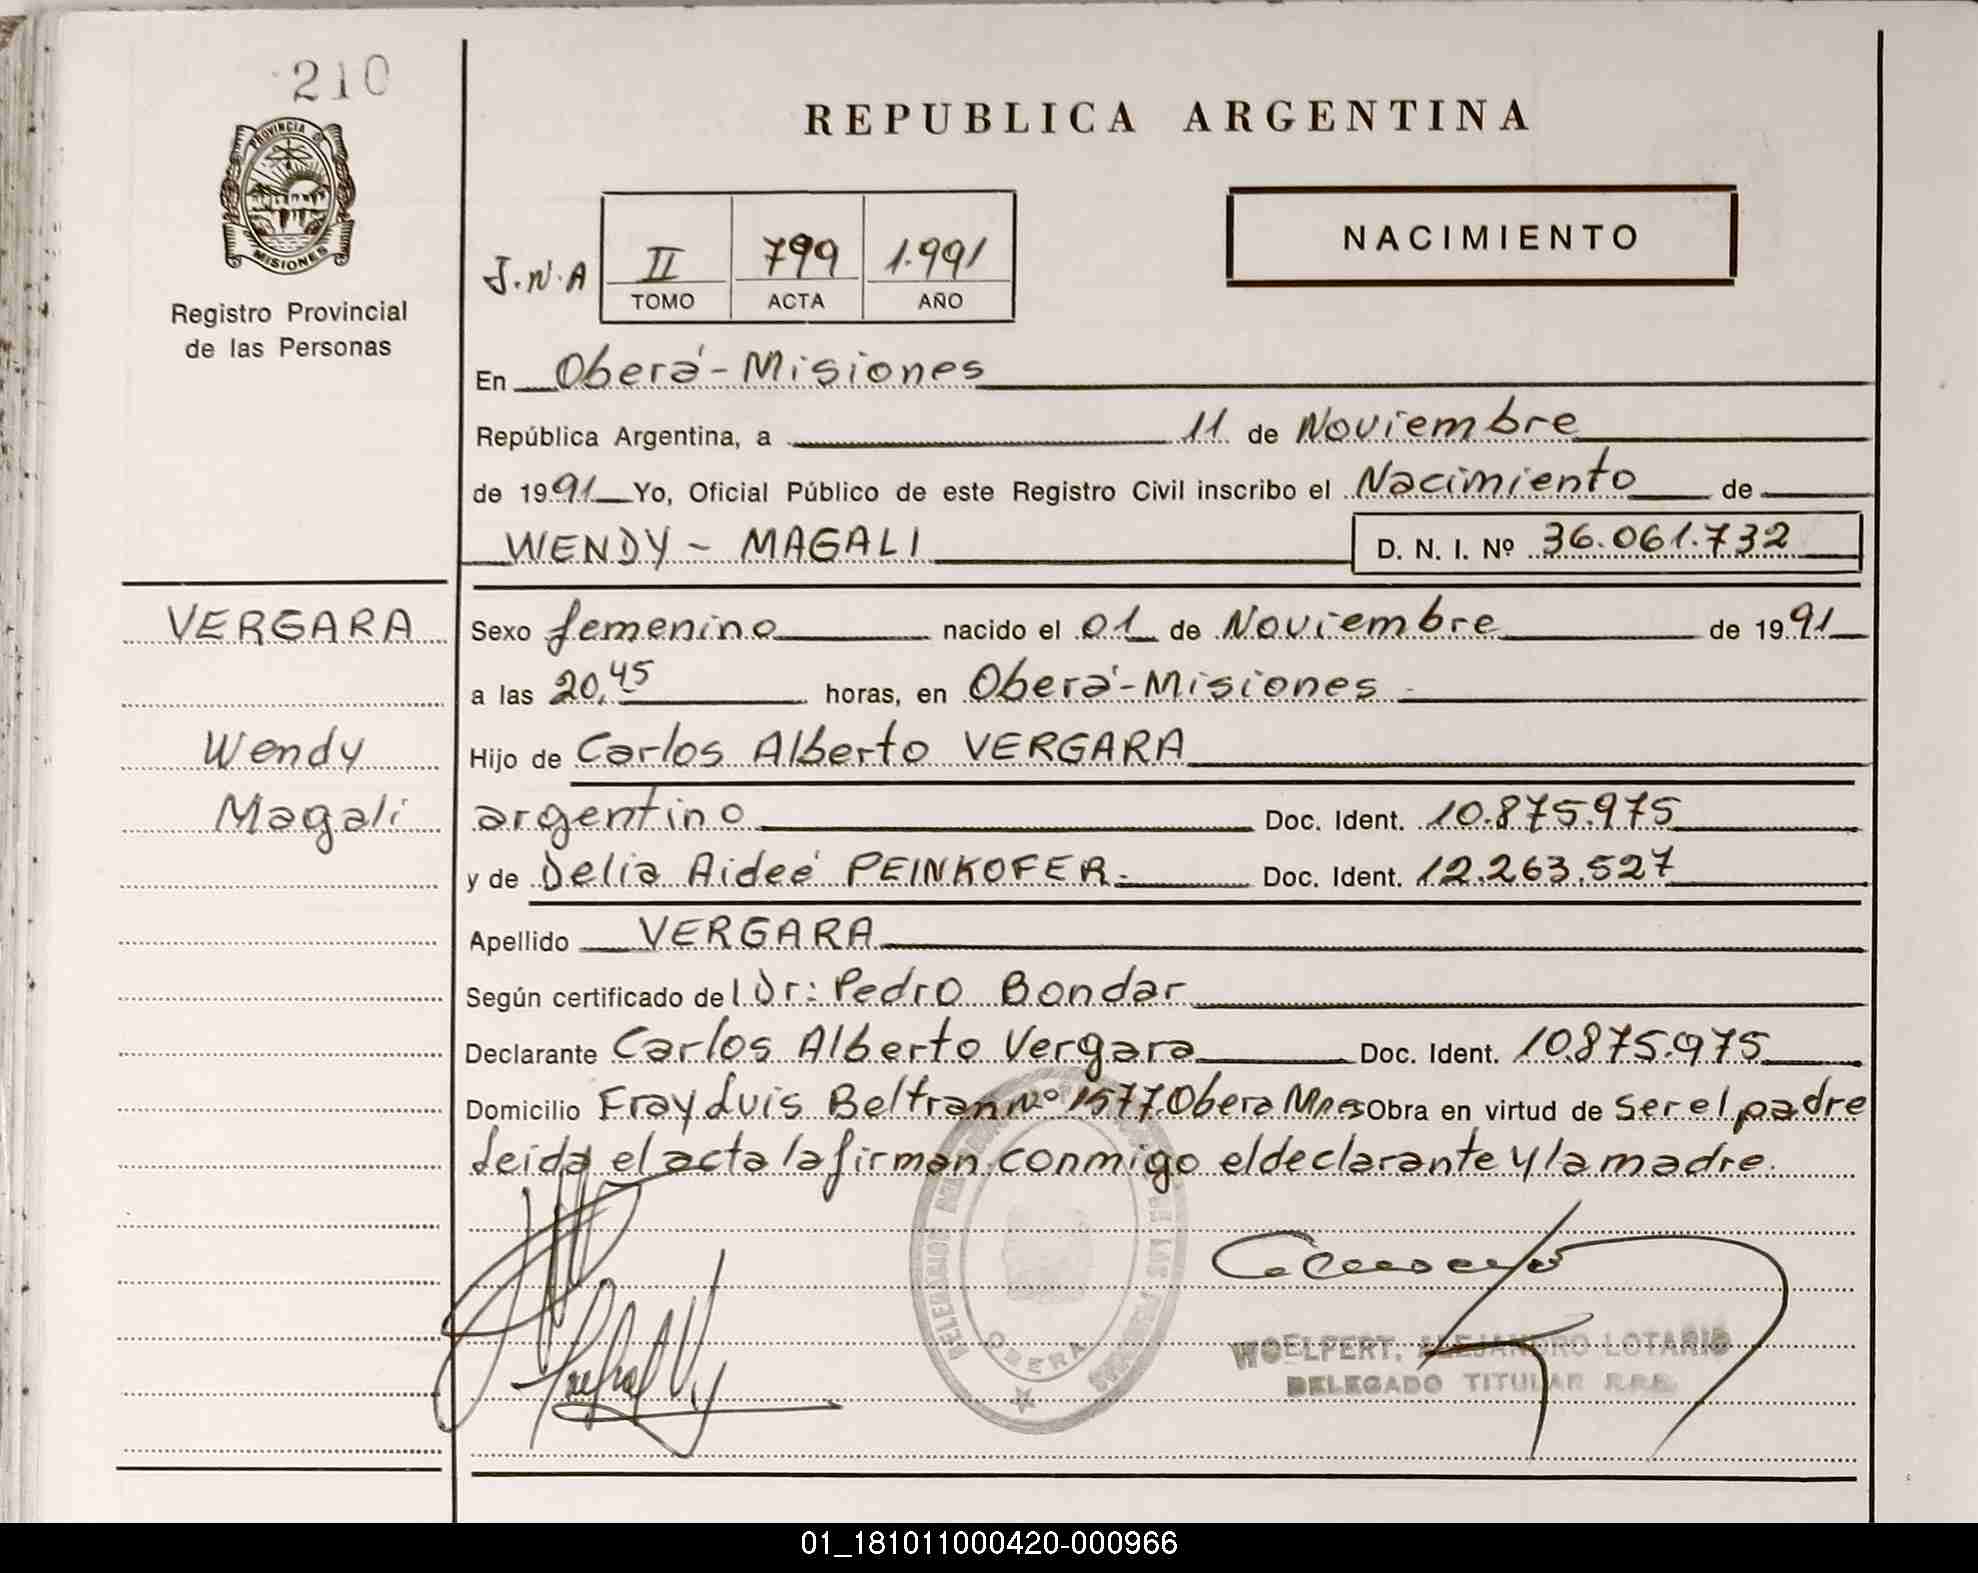 210
PROVINCIA DE
MISIONES
Registro Provincial
de las Personas
REPUBLICA ARGENTINA
NACIMIENTO
J.N.A II 799 1.991
TOMO ACTA AÑO
En Oberá - Misiones
República Argentina, a 11 de Noviembre
de 1991 Yo, Oficial Público de este Registro Civil inscribo el Nacimiento de
WENDY - MAGALI D. N. I. Nº 36.061.732
VERGARA
Wendy
Magali
Sexo femenino nacido el 01 de Noviembre de 1991
a las 20,45 horas, en Oberá - Misiones -
Hijo de Carlos Alberto VERGARA
argentino Doc. Ident. 10.875.975
y de Delia Aideé PEINKOFER.- Doc. Ident. 12.263.527
Apellido VERGARA
Según certificado del Dr: Pedro Bondar
Declarante Carlos Alberto Vergara Doc. Ident. 10.875.975
Domicilio Fray Luis Beltran Nº 1577 Obera Mnes Obra en virtud de ser el padre
Leida el acta la firman conmigo el declarante y la madre.
OBERA
WOELPERT, ALEJANDRO LOTARIO
DELEGADO TITULAR R.P.P.
01_181011000420-000966